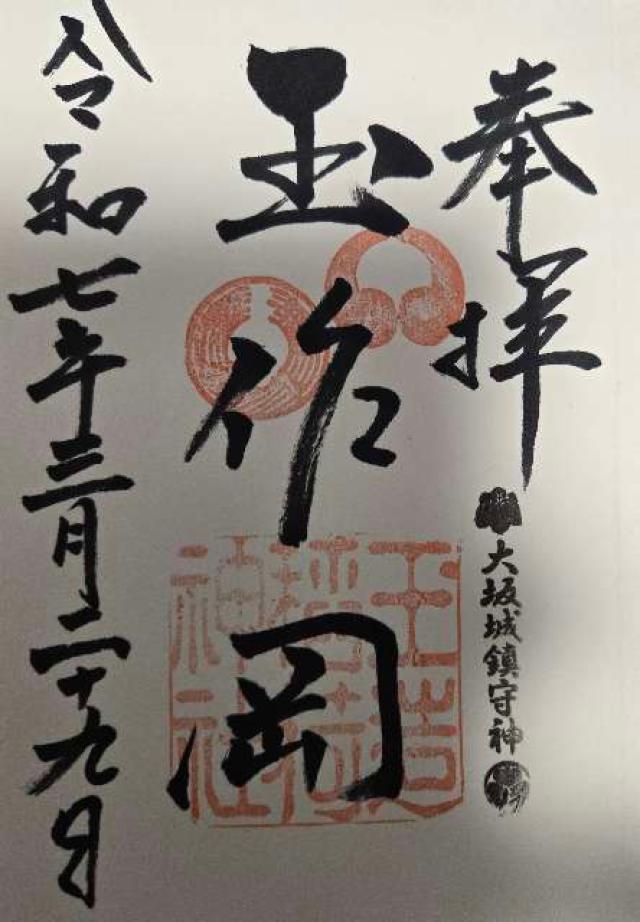 奉拝
大坂城鎮守神
玉作岡
玉造
稲荷
神社
令和七年三月二十九日